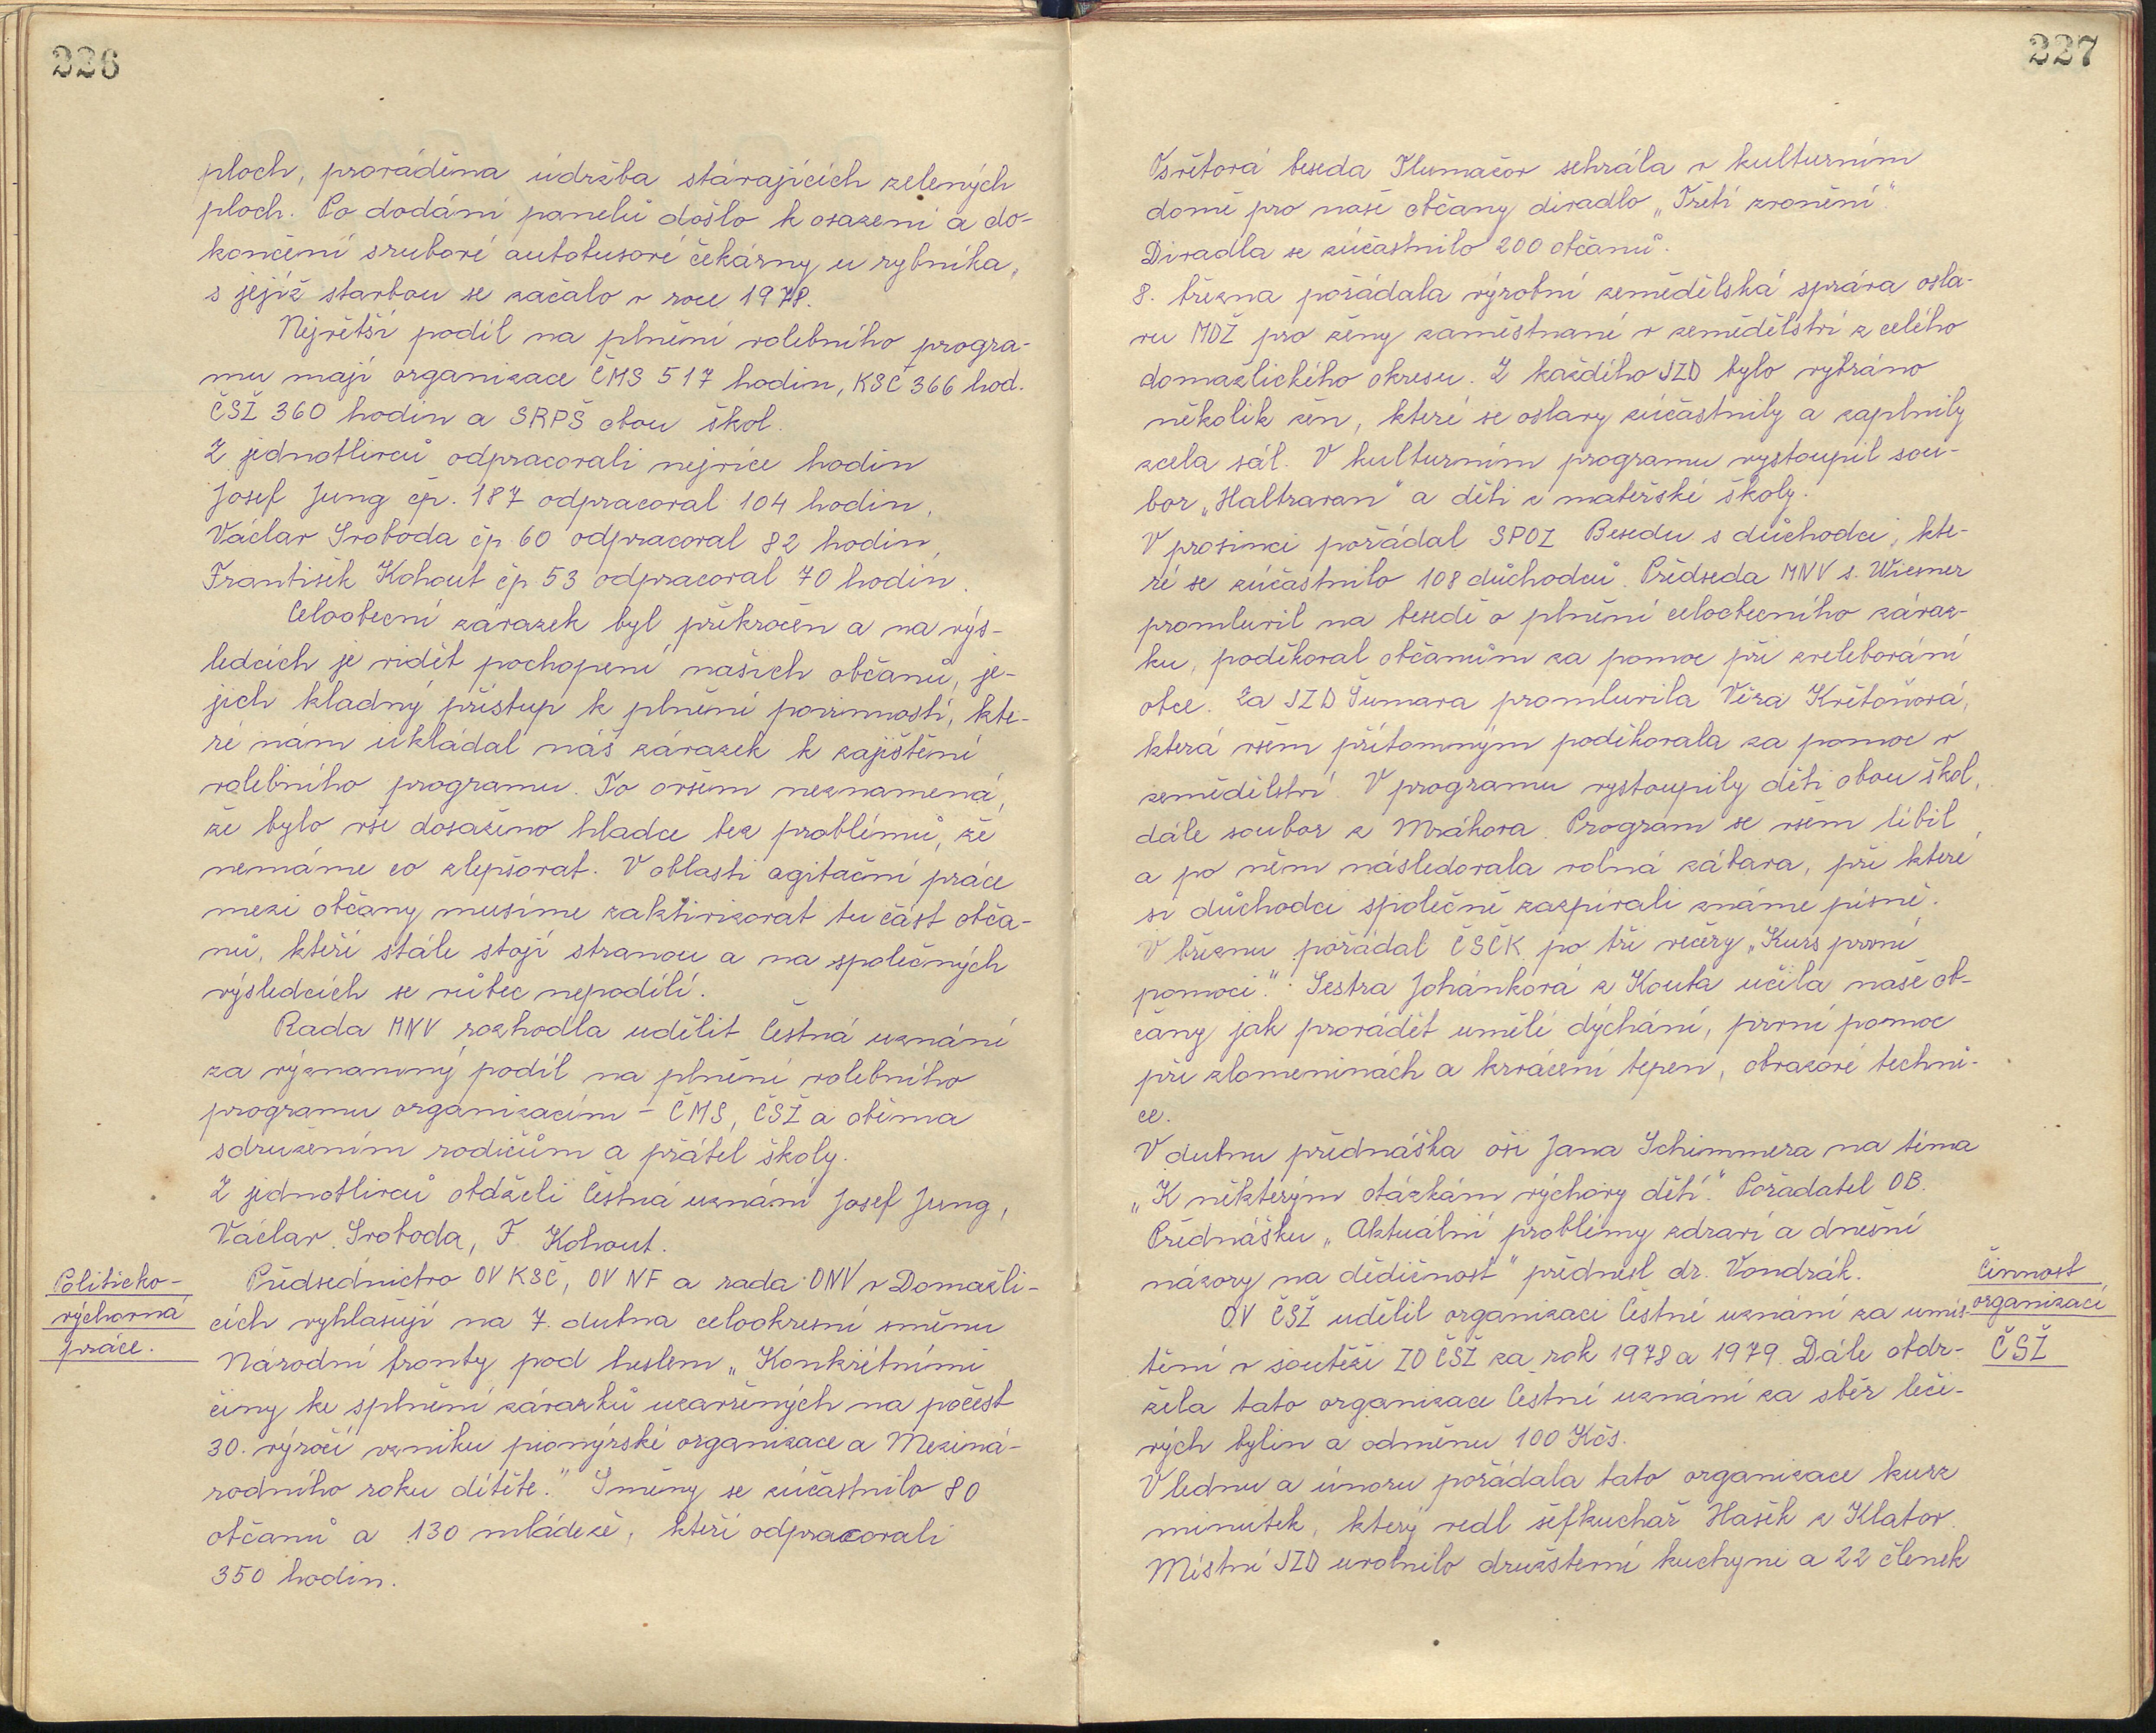 226
ploch, prováděna údržba stávajících zelených
ploch. Po dodání panelů došlo k osazení a do-
končení srubové autobusové čekárny u rybníka,
s jejíž stavbou se začalo v roce 1978.
Největší podíl na plnění volebního progra-
mu mají organizace ČMS 517 hodin, KSČ 366 hod.
ČSŽ 360 hodin a SRPŠ obou škol.
Z jednotlivců odpracovali nejvíce hodin
Josef Jung čp. 187 odpracoval 104 hodin,
Václav Svoboda čp 60 odpracoval 82 hodin,
František Kohout čp 53 odpracoval 70 hodin.
Celoobecní závazek byl překročen a na výs-
ledcích je vidět pochopení našich občanů, je-
jich kladný přístup k plnění povinností, kte-
ré nám ukládal náš závazek k zajištění
volebního programu. To ovšem neznamená,
že bylo vše dosaženo hladce bez problémů, že
nemáme co zlepšovat. V oblasti agitační práce
mezi občany musíme zaktivizovat tu část obča-
nů, kteří stále stojí stranou a na společných
výsledcích se vůbec nepodílí.
Rada MNV rozhodla udělit Čestná uznání
za významný podíl na plnění volebního
programu organizacím - ČMS, ČSŽ a oběma
sdružením rodičům a přátel školy.
Z jednotlivců obdželi Čestná uznání Josef Jung,
Václav Svoboda, F. Kohout.
Politicko-
výchovná
práce.
Předsednictvo OV KSČ, OV NF a rada ONV v Domažli-
cích vyhlašují na 7. dubna celookresní směnu
Národní fronty pod heslem „Konkrétními
činy ke splnění závazků uzavřených na počest
30. výročí vzniku pionýrské organizace a Meziná-
rodního roku dítěte." Směny se zúčastnilo 80
občanů a 130 mládeže, kteří odpracovali
350 hodin.
227
Osvětová beseda Tlumačov sehrála v kulturním
domě pro naše občany divadlo „Třetí zvonění".
Divadla se zúčastnilo 200 občanů.
8. března pořádala výrobní zemědělská správa osla-
vu MDŽ pro ženy zaměstnané v zemědělství z celého
domažlického okresu. Z každého JZD bylo vybráno
několik žen, které se oslavy zúčastnily a zaplnily
zcela sál. V kulturním programu vystoupil sou-
bor „Haltravan" a děti z mateřské školy.
V prosinci pořádal SPOZ Besedu s důchodci, kte-
ré se zúčastnilo 108 důchodců. Předseda MNV s. Wiesner
promluvil na besedě o plnění celoobecního závaz-
ku, poděkoval občanům za pomoc při zvelebování
obce. Za JZD Šumava promluvila Věra Květoňová,
která všem přítomným poděkovala za pomoc v
zemědělství. V programu vystoupily děti obou škol,
dále soubor z Mrákova. Program se všem líbil,
a po něm následovala volná zábava, při které
si důchodci společně zazpívali známe písně.
V březnu pořádal ČSČK po tři večery „Kurs první
pomoci." Sestra Johánková z Kouta učila naše ob-
čany jak provádět umělé dýchání, první pomoc
při zlomeninách a krvácení tepen, obvazové techni-
ce.
V dubnu přednáška oši Jana Schimmera na téma
„K některým otázkám výchovy dětí." Pořadatel OB.
Přednášku „Aktuální problémy zdraví a dnešní
názory na dědičnost" přednesl dr. Vondrák.
Činnost
organizací
ČSŽ
OV ČSŽ udělil organizaci Čestné uznání za umís-
tění v soutěži ZO ČSŽ za rok 1978 a 1979. Dále obdr-
žela tato organizace Čestné uznání za sběr léči-
vých bylin a odměnu 100 Kčs.
V lednu a únoru pořádala tato organizace kurz
minutek, který vedl šéfkuchař Hašek z Klatov.
Místní JZD uvolnilo družstevní kuchyni a 22 členek